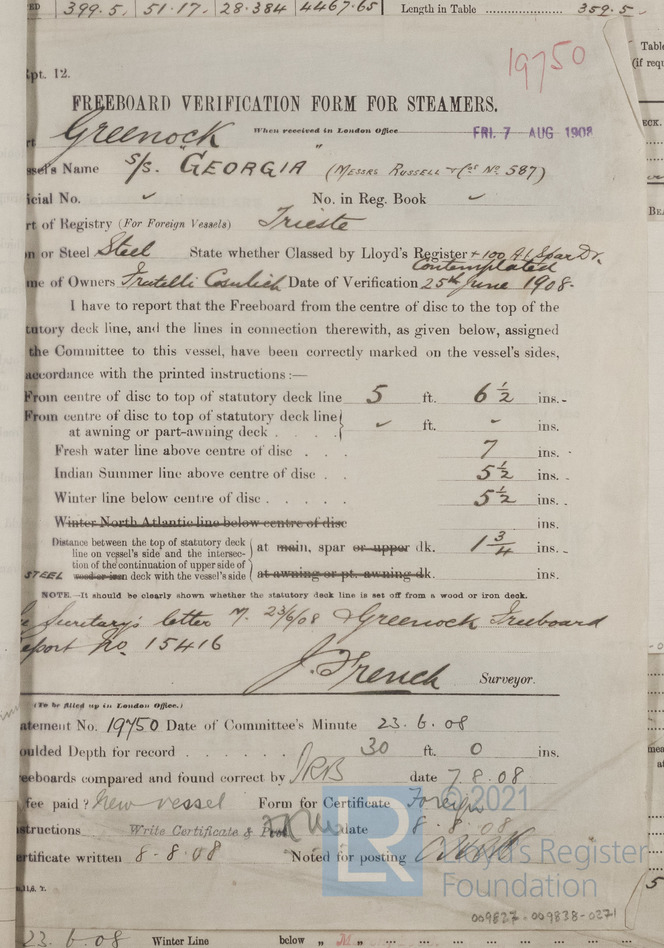 399.5, 51.17, 28.384 4467.65 Length in Table 359.5
pt. 12.
19750
Table
(if requ
FREEBOARD VERIFICATION FORM FOR STEAMERS.
Greenock When received in London Office FRI. 7 AUG 1908
sel's Name S/S. "GEORGIA" (MESSRS RUSSELL & Co's No 587)
icial No. ✓ No. in Reg. Book ✓
rt of Registry (For Foreign Vessels) Trieste
n or Steel Steel State whether Classed by Lloyd's Register +100 A1 Spar Dk.
Contemplated
me of Owners Fratelli Cosulich Date of Verification 25th June 1908.
I have to report that the Freeboard from the centre of disc to the top of the
tutory deck line, and the lines in connection therewith, as given below, assigned
the Committee to this vessel, have been correctly marked on the vessel's sides,
accordance with the printed instructions:—
From centre of disc to top of statutory deck line 5 ft. 6 1/2 ins.
From centre of disc to top of statutory deck line
at awning or part-awning deck . . . . ✓ ft. ✓ ins.
Fresh water line above centre of disc . . . 7 ins.
Indian Summer line above centre of disc . . 5 1/2 ins.
Winter line below centre of disc . . . . . 5 1/2 ins.
Winter North Atlantic line below centre of disc ins.
Distance between the top of statutory deck
line on vessel's side and the intersec-
tion of the continuation of upper side of
STEEL wood or iron deck with the vessel's side
at main, spar or upper dk. 1 3/4 ins.
at awning or pt. awning dk. ins.
NOTE.—It should be clearly shown whether the statutory deck line is set off from a wood or iron deck.
Secretary's letter 23/6/08 & Greenock Freeboard
eport No. 15416
J. French Surveyor.
(To be filled up in London Office.)
atement No. 19750 Date of Committee's Minute 23.6.08
oulded Depth for record . . . . . . 30 ft. 0 ins.
eeboards compared and found correct by JRB date 7.8.08
fee paid? New vessel Form for Certificate Foreign
structions Write Certificate & Post date 8.8.08
ertificate written 8.8.08 Noted for posting
© 2021
LR
Lloyd's Register
Foundation
009827-009838-0271
23.6.08 Winter Line below „ „